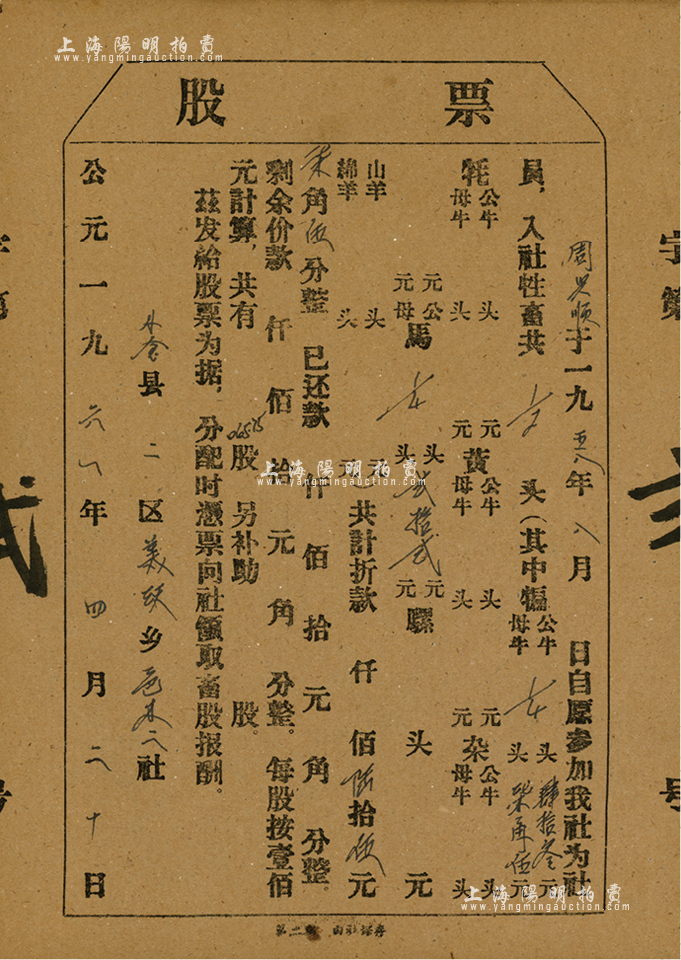 上海陽明拍賣
www.yangmingauction.com
股票
周 順于一九五八年八月 日自愿参加我社为社
員，入社牲畜共 头（其中犏公牛 头肆拾叁元
母牛 头柒角伍元
牦公牛 头 元黄公牛 头 元杂公牛 头
母牛 头 元 母牛 头 元 母牛 头
元公馬 头贰拾贰元騾 头 元
元母 头 元
山羊 头 元共計折款 仟 佰陆拾伍元
綿羊 头 元
柒角伍分整 已还款 仟 佰 拾 元 角 分整。
剩余价款 仟 佰 拾 元 角 分整。每股按壹佰
元計算，共有 股 另补助 股。
茲发給股票为据，分配时憑票向社領取畜股报酬。
县二区美 乡 社
公元一九六 年四月二十日
上海陽明拍賣
www.yangmingauction.com
上海陽明拍賣
www.yangmingauction.com
字第
号
第二
存